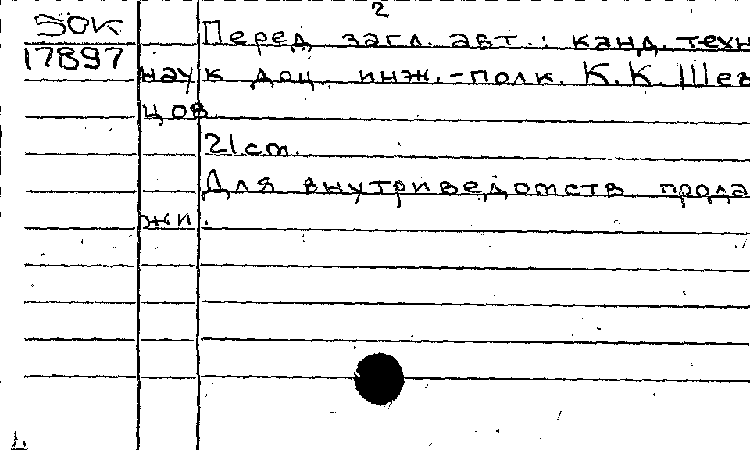 2
ЗОК
Перед загл. авт.: канд. техн
17897
наук доц. инж.-полк. К.К Шев
цов.
21 cm.
Для внутриведомств прода
жи.